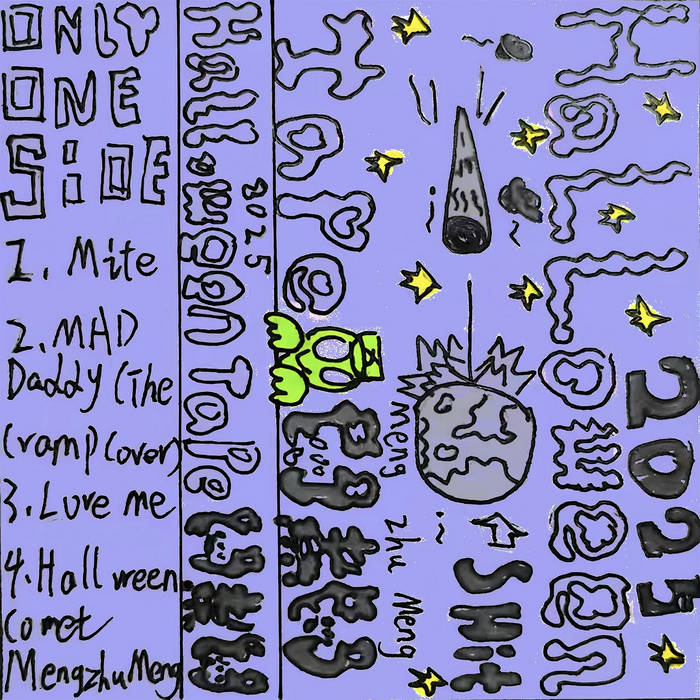 ONLY
ONE
SiDE
1. Mite
2. MAD
Daddy (The
Cramp Cover)
3. Lure me
4. Halloween
Comet
MengzhuMeng
HalloWeen TaPe
2025
HalloWeen
2025
TaPe
Meng zhu Meng
SHit